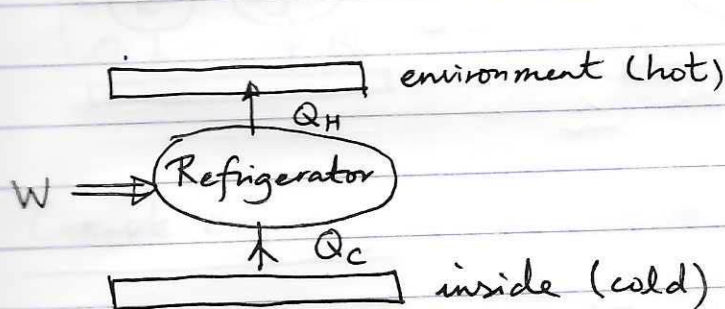 environment (hot)
Q_H
W Refrigerator
Q_C
inside (cold)